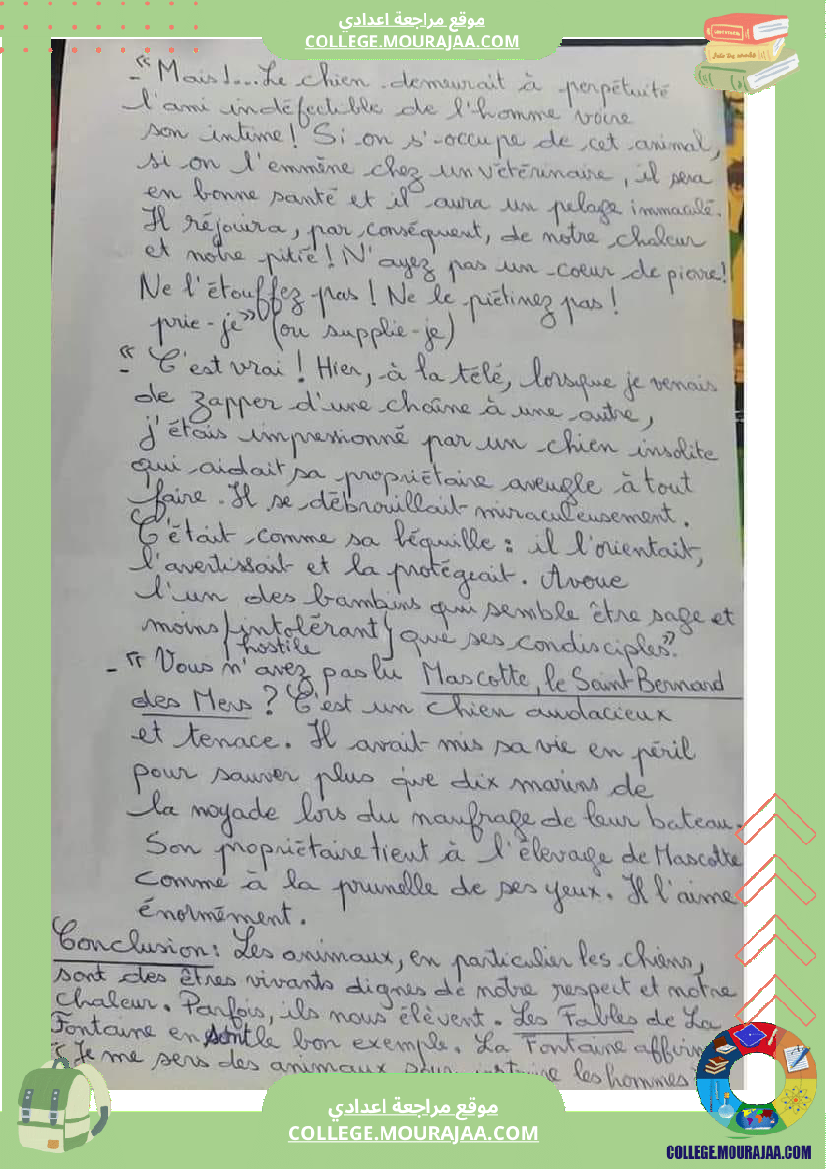 موقع مراجعة اعدادي
COLLEGE.MOURAJAA.COM
-"Mais!...Le chien demeurait à perpétuité
l'ami indéfectible de l'homme voire
son intime! Si on s'occupe de cet animal,
si on l'emmène chez un vétérinaire, il sera
en bonne santé et il aura un pelage immaculé.
Il réjouira, par conséquent, de notre chaleur
et notre pitié! N'ayez pas un coeur de pierre!
Ne l'étouffez pas! Ne le piétinez pas!
prie-je" (ou supplie-je)
-"C'est vrai! Hier, à la télé, lorsque je venais
de zapper d'une chaîne à une autre,
j'étais impressionné par un chien insolite
qui aidait sa propriétaire aveugle à tout
faire. Il se débrouillait miraculeusement.
C'était comme sa béquille: il l'orientait,
l'avertissait et la protégeait. Avoue
l'un des bambins qui semble être sage et
moins /intolérant/ que ses condisciples".
hostile
-"Vous n'avez pas lu Mascotte, le Saint Bernard
des Mers? C'est un chien audacieux
et tenace. Il avait mis sa vie en péril
pour sauver plus que dix marins de
la noyade lors du naufrage de leur bateau.
Son propriétaire tient à l'élevage de Mascotte
comme à la prunelle de ses yeux. Il l'aime
énormément.
Conclusion: Les animaux, en particulier les chiens,
sont des êtres vivants dignes de notre respect et notre
chaleur. Parfois, ils nous élèvent. Les Fables de La
Fontaine en sont le bon exemple. La Fontaine affirm
"Je me sers des animaux les hommes
موقع مراجعة اعدادي
COLLEGE.MOURAJAA.COM
COLLEGE.MOURAJAA.COM